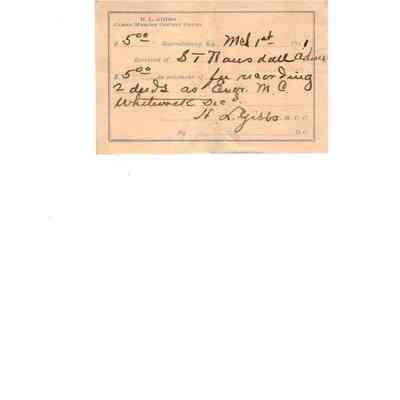 H. L. GIBBS
CLERK MERCER COUNTY COURT
$ 5.00 Harrodsburg, Ky., Mch 1st 1
Received of S T Ransdall Admr
$ 5.00 in payment of for recording
2 deeds as Exor. M. C.
Whitenack Dec'd.
H. L. Gibbs, M.C.C.
By D.C.